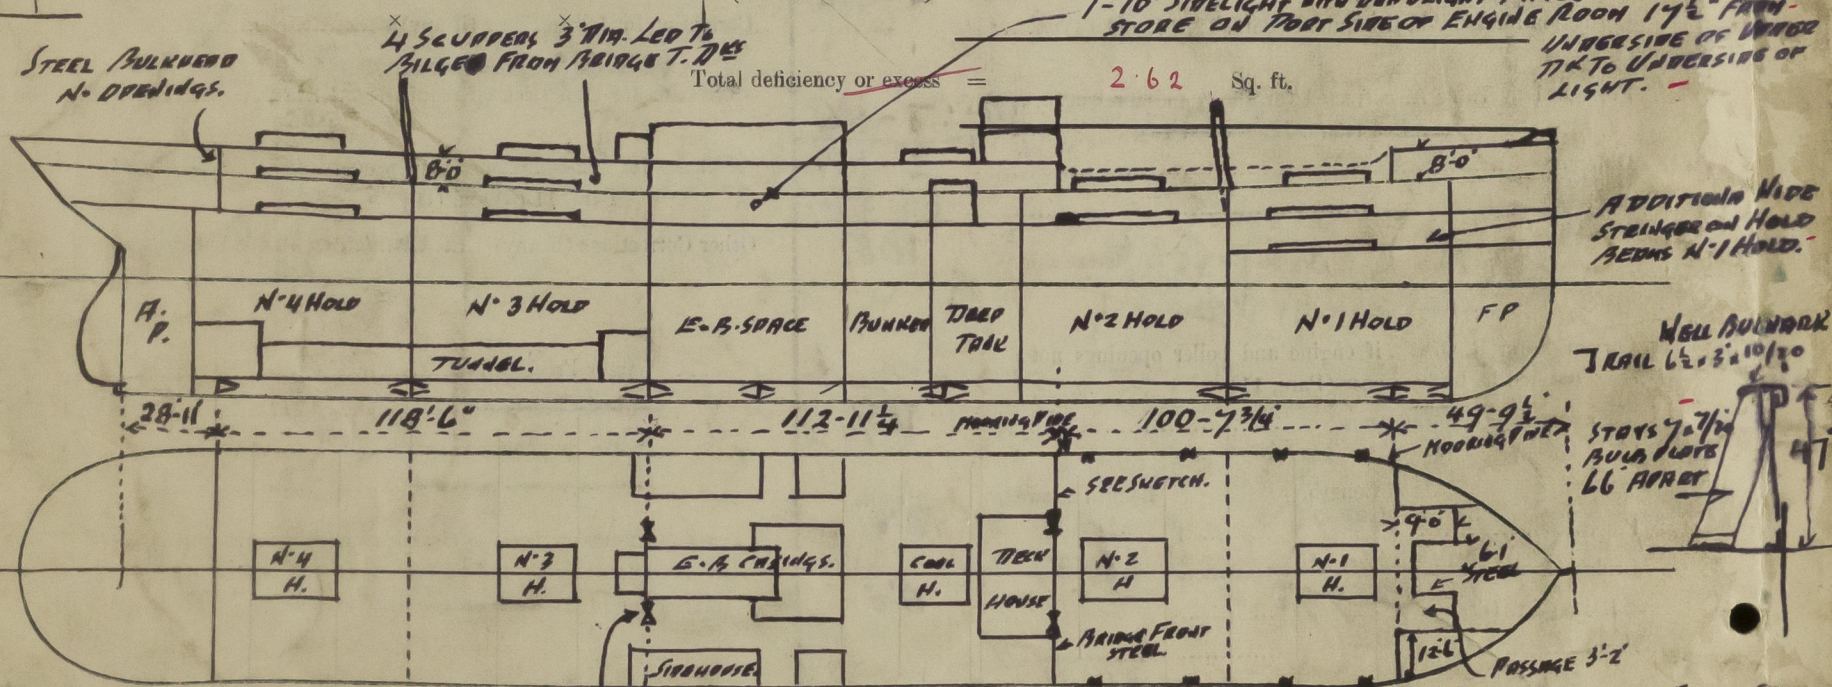 STEEL BULKHEAD
No OPENINGS.
4 SCUPPERS 3" DIA. LED TO
BILGES FROM BRIDGE T. DKS
STORE ON PORT SIDE OF ENGINE ROOM 17½" FROM
UNDERSIDE OF UPPER
DK TO UNDERSIDE OF
LIGHT.
Total deficiency or excess = 2.62 Sq. ft.
8'-0"
8'-0"
ADDITIONAL WIDE
STRINGER ON HOLD
BEAMS No 1 HOLD.
A.
P.
No 4 HOLD
No 3 HOLD
TUNNEL.
E.B. SPACE
BUNKER
DEEP
TANK
No 2 HOLD
No 1 HOLD
FP
WELL BULWARK
RAIL 6½ x 3 x 10/20
28-11
118'-6"
112-11¼
MOORING PIPE
100-7¾
49-9½
MOORING PIPE
STAYS 7 x 7/20
BULB PLATE
66" APART
47"
SEE SKETCH.
9'-0"
No 4
H.
No 3
H.
E.B CASINGS.
COAL
H.
DECK
HOUSE
No 2
H
No 1
H.
6'1"
STEEL
BRIDGE FRONT
STEEL.
SIDEHOUSE
12'-6"
PASSAGE 3'-2"